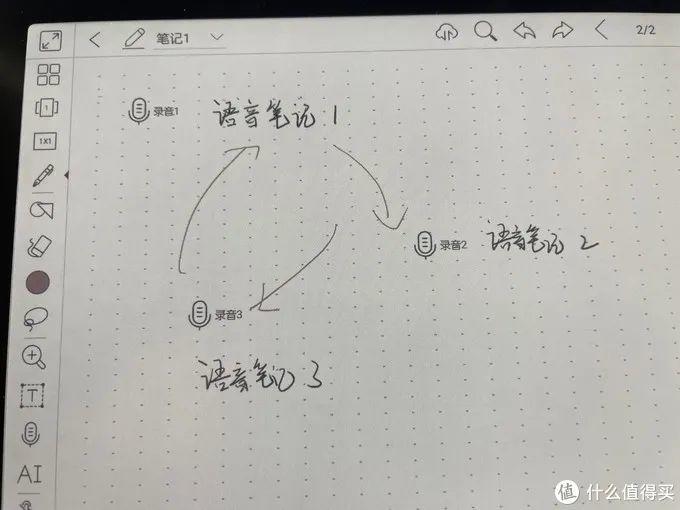 笔记1
2/2
1
1X1
录音1 语音笔记1
录音2 语音笔记2
录音3
语音笔记3
T
AI
值 什么值得买